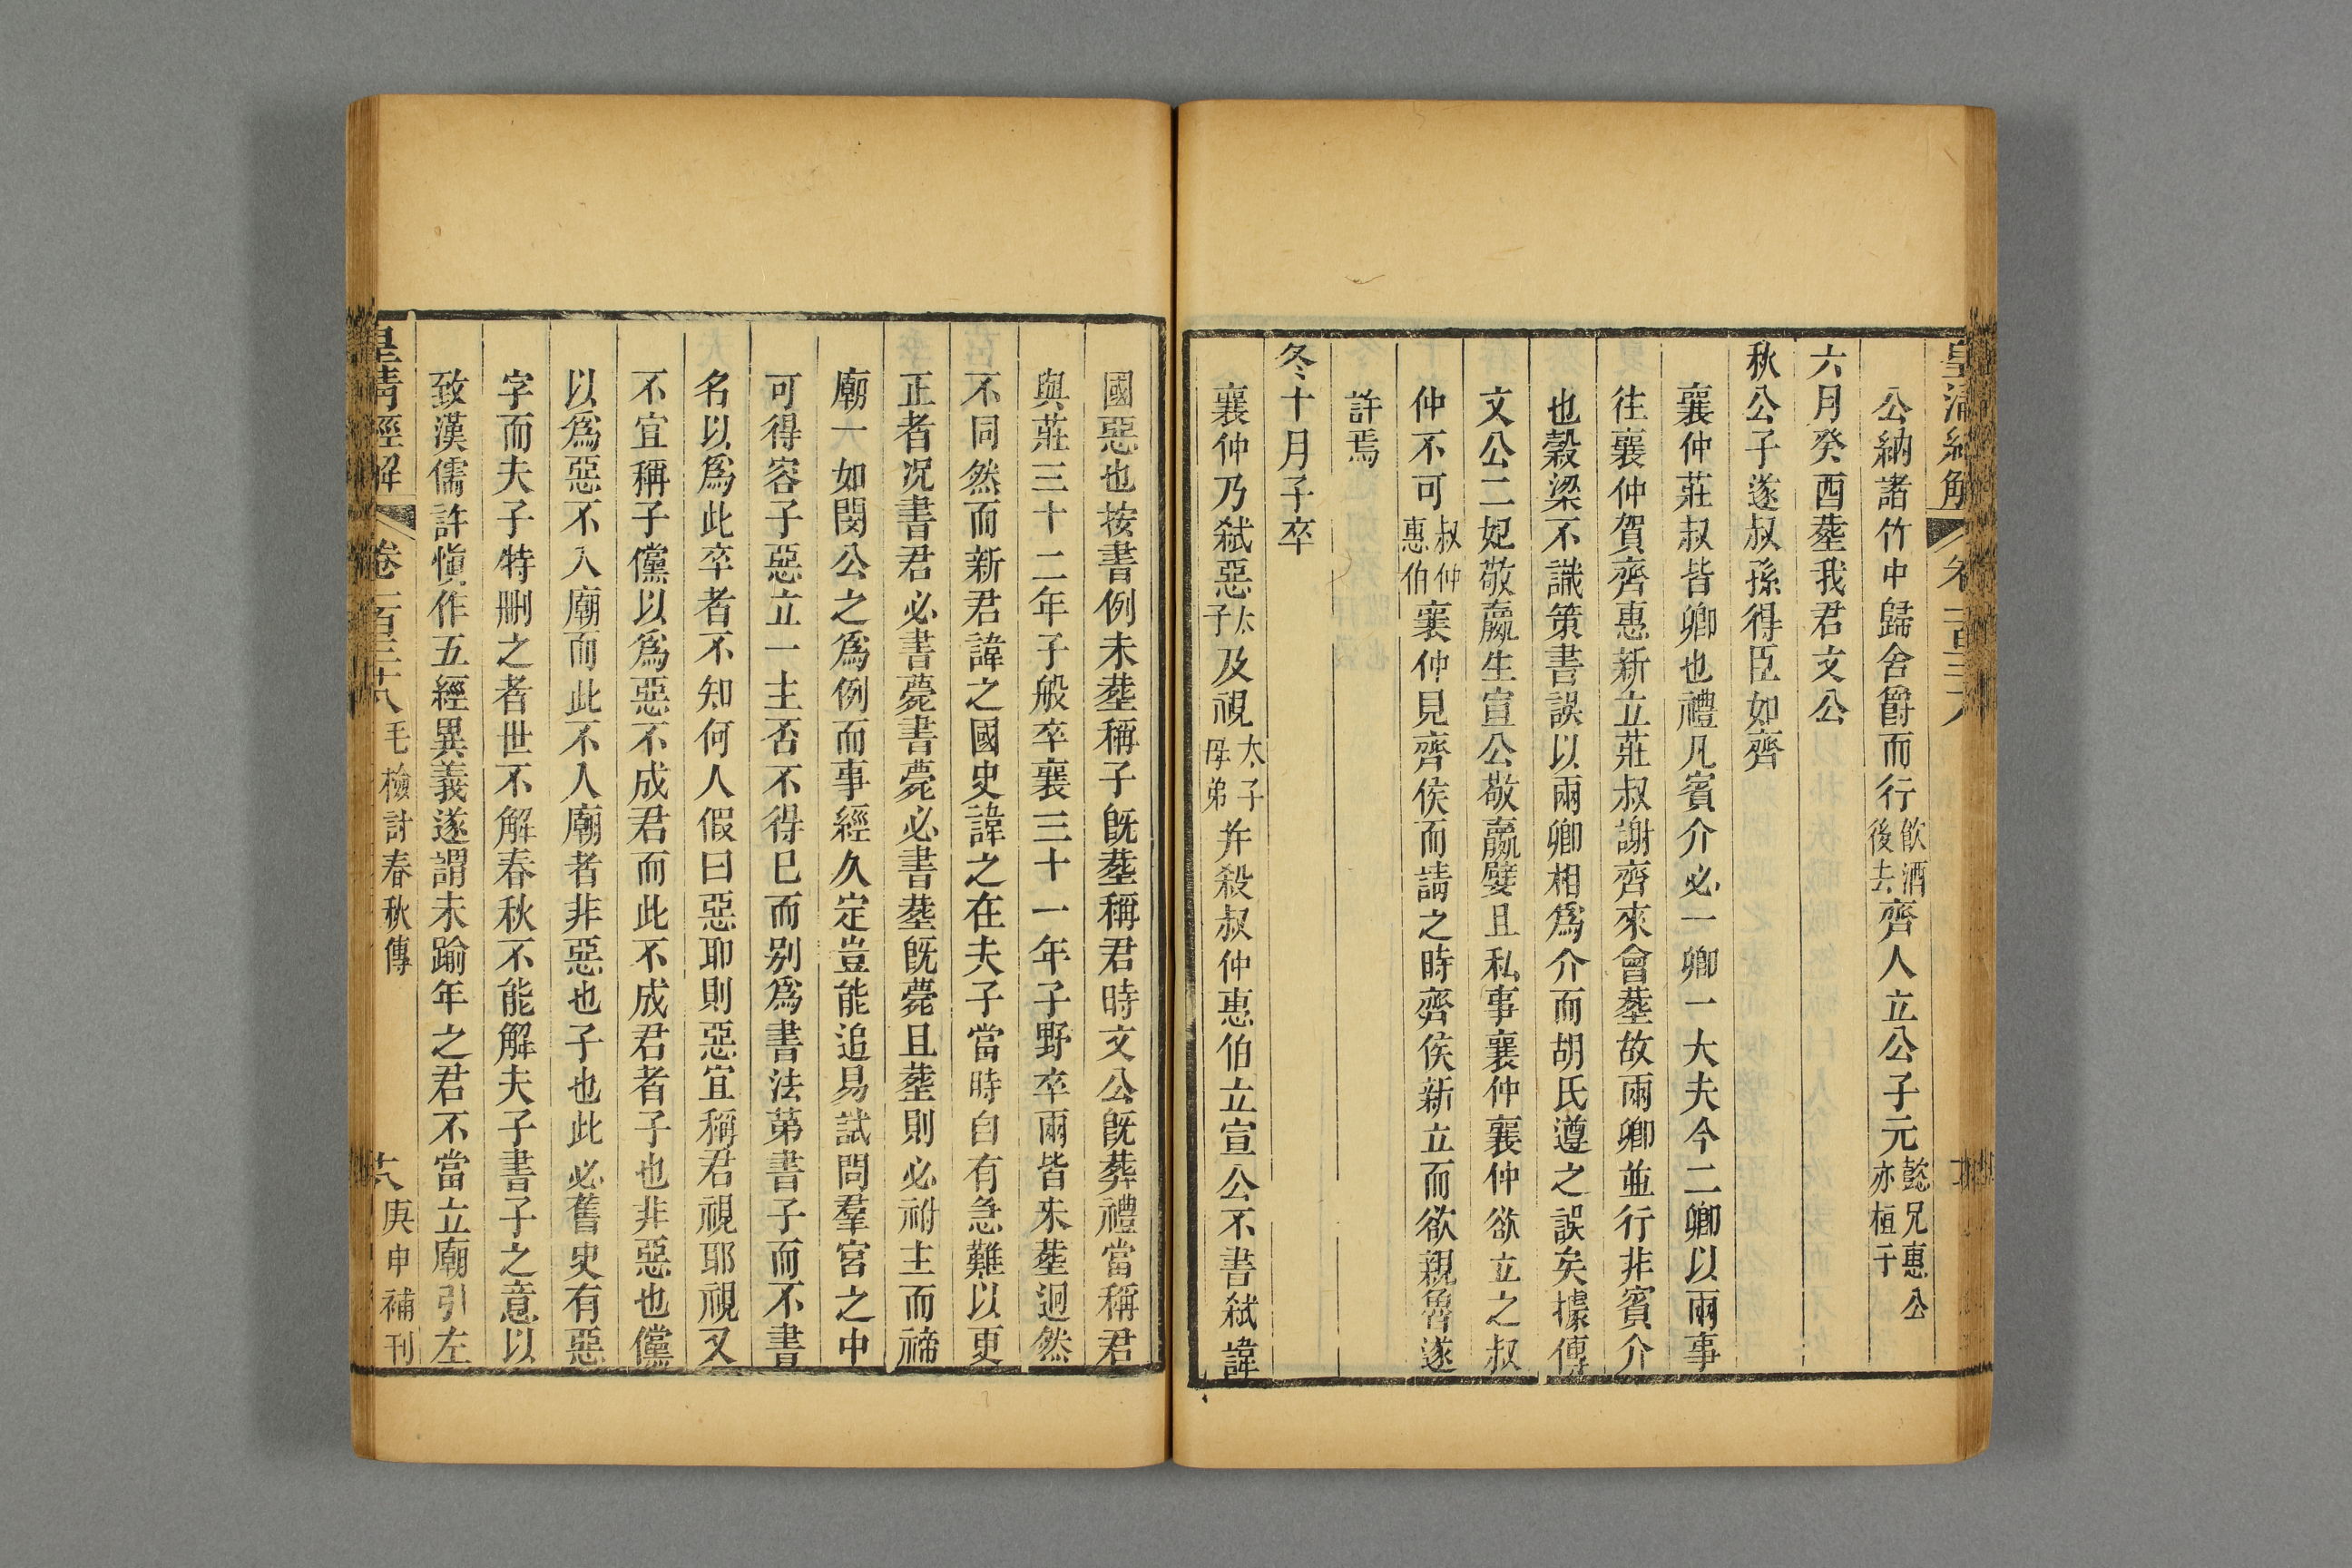 皇清經解
公納諸竹中歸舍爵而行飲酒後去齊人立公子元懿兄惠公亦桓子
六月癸酉塟我君文公
秋公子遂叔孫得臣如齊
襄仲莊叔皆卿也禮凡賓介必一卿一大夫今二卿以兩事
往襄仲賀齊惠新立莊叔謝齊來會塟故兩卿並行非賓介
也穀梁不識策書誤以兩卿相爲介而胡氏遵之誤矣據傳
文公二妃敬嬴生宣公敬嬴嬖且私事襄仲襄仲欲立之叔
仲不可叔仲惠伯襄仲見齊侯而請之時齊侯新立而欲親魯遂
許焉
冬十月子卒
襄仲乃弑惡太子及視太子母弟并殺叔仲惠伯立宣公不書弑諱
國惡也按書例未塟稱子旣塟稱君時文公旣葬禮當稱君
與莊三十二年子般卒襄三十一年子野卒兩皆未塟迥然
不同然而新君諱之國史諱之在夫子當時自有急難以更
正者况書君必書薨書薨必書塟旣薨且塟則必祔主而禘
廟一如閔公之爲例而事經久定豈能追易試問羣宮之中
可得容子惡立一主否不得已而别爲書法第書子而不書
名以爲此卒者不知何人假曰惡耶則惡宜稱君視耶視又
不宜稱子儻以爲惡不成君而此不成君者子也非惡也儻
以爲惡不入廟而此不入廟者非惡也子也此必舊史有惡
字而夫子特刪之者世不解春秋不能解夫子書子之意以
致漢儒許愼作五經異義遂謂未踰年之君不當立廟引左
皇清經解 卷一百三十八 毛檢討春秋傳 十八 庚申補刊